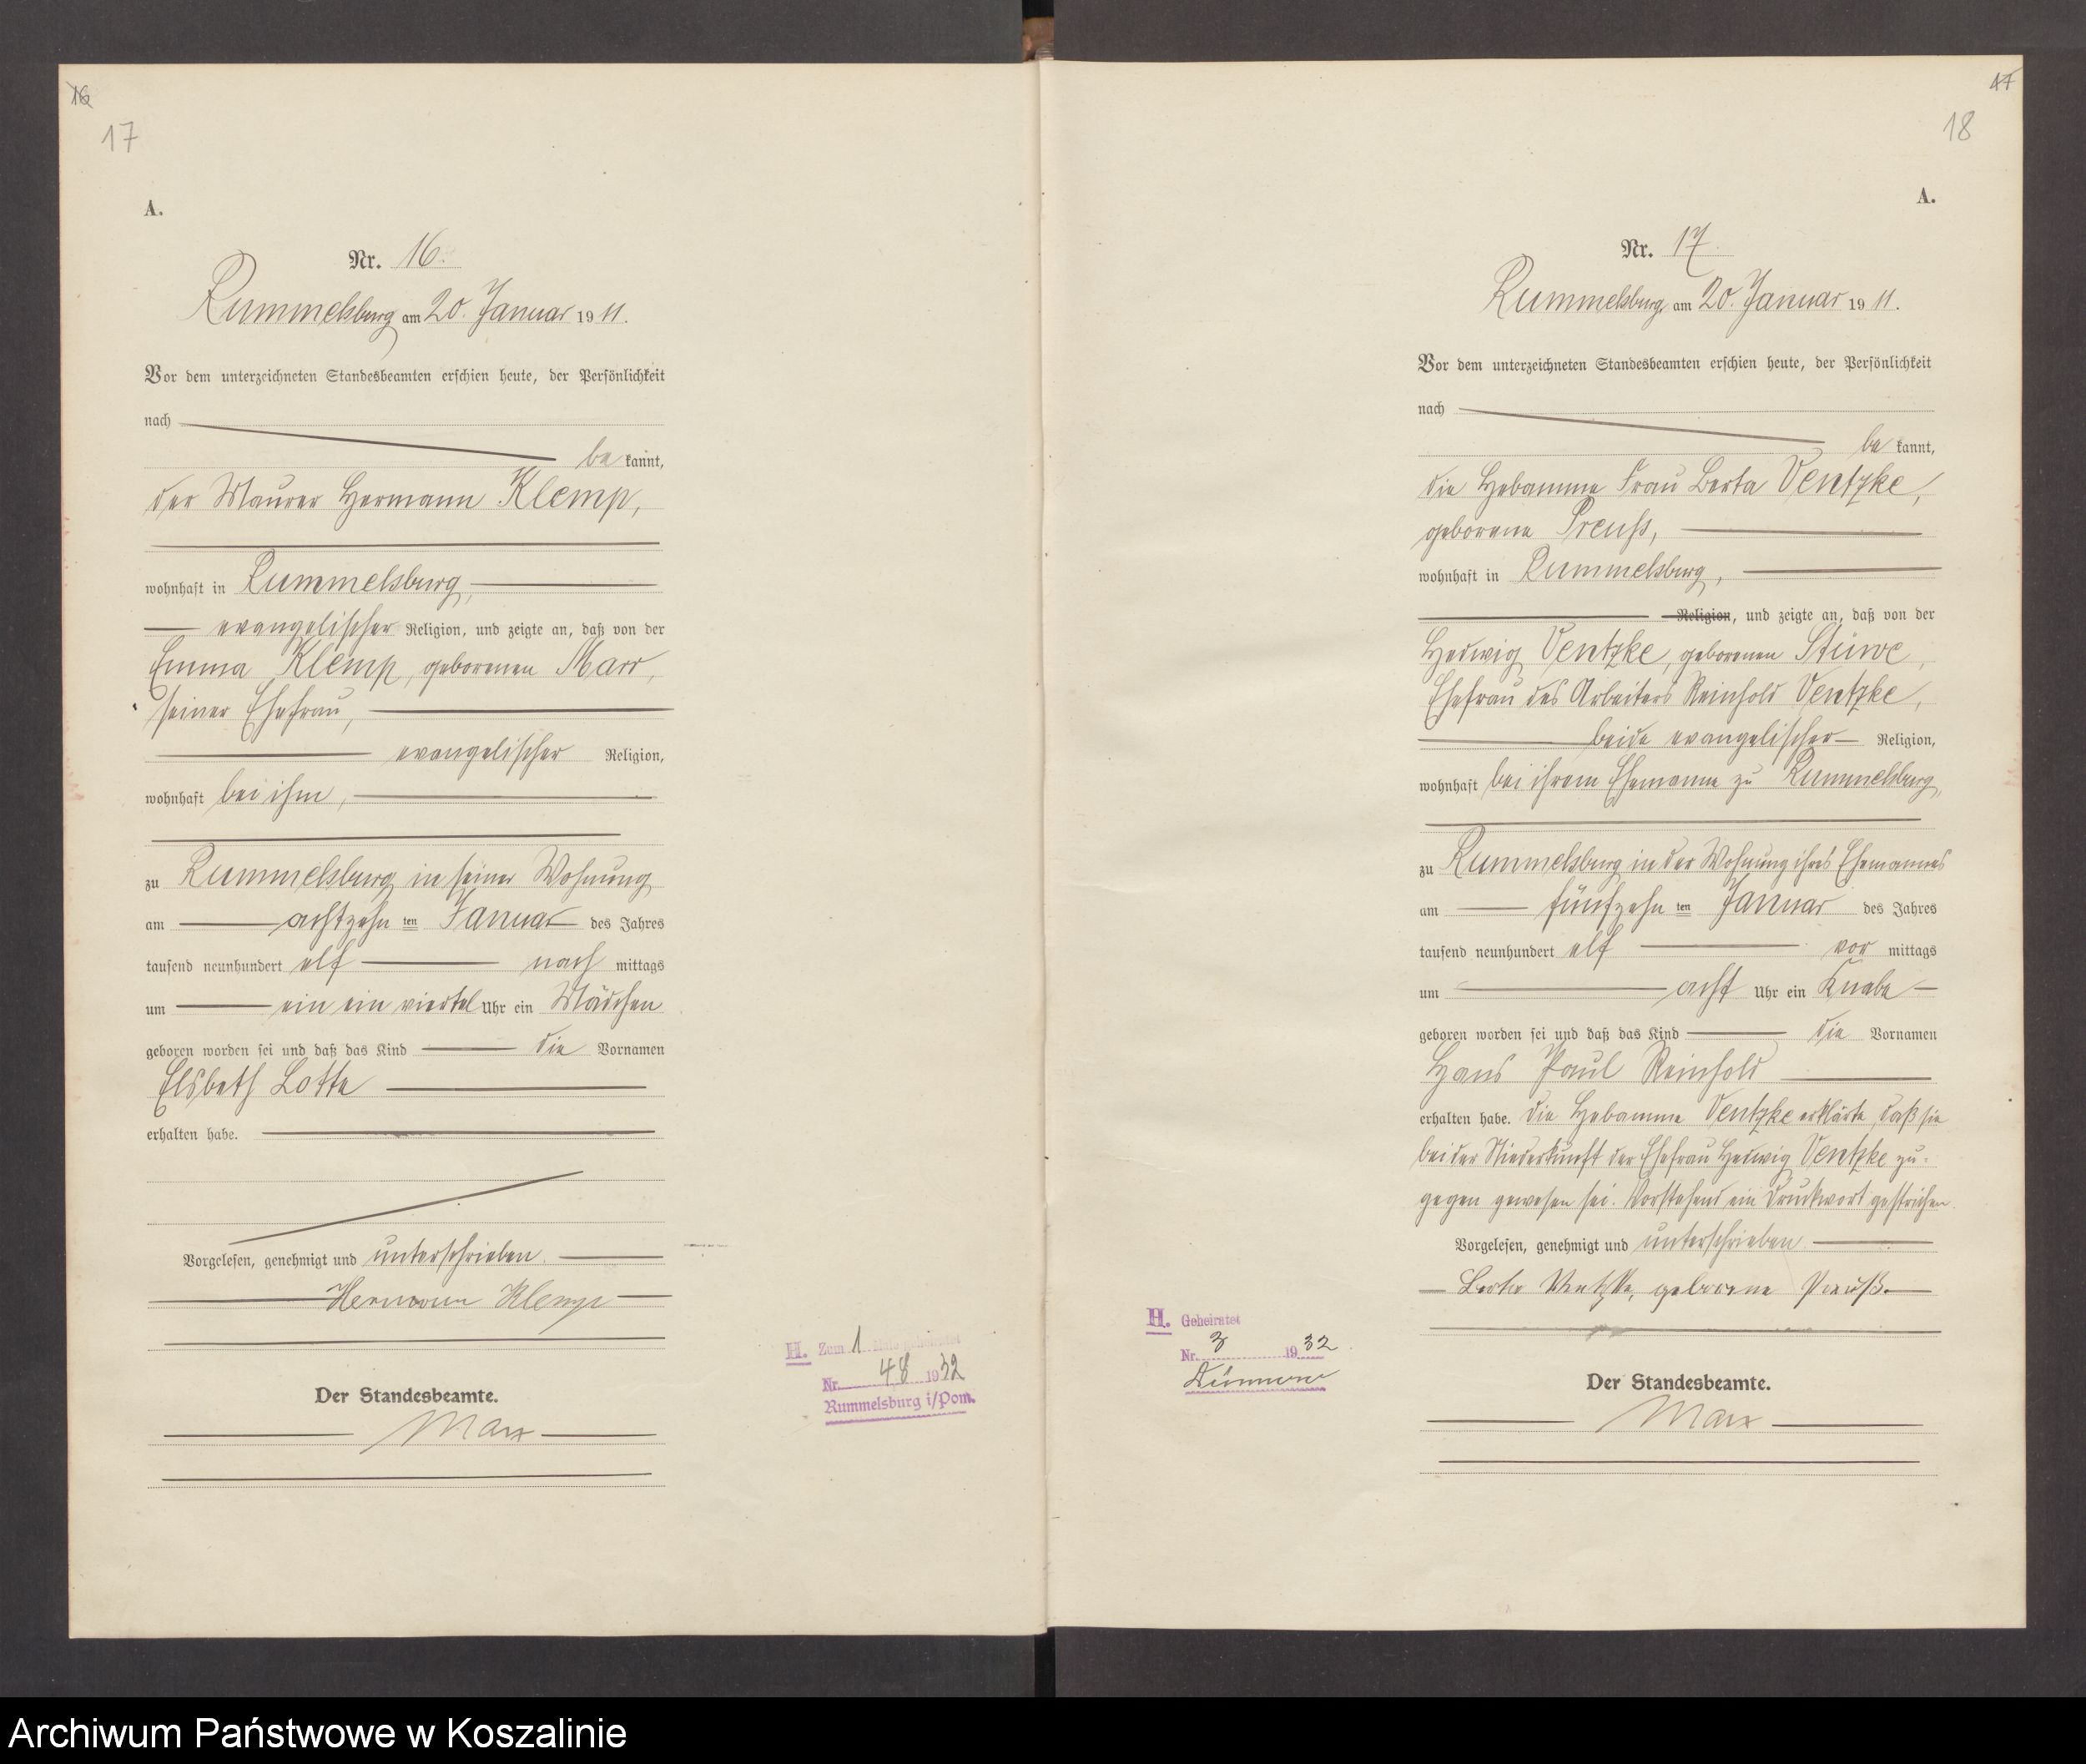 16
17
A.
Nr. 16.
Rummelsburg am 20. Januar 1911.
Vor dem unterzeichneten Standesbeamten erschien heute, der Persönlichkeit
nach
be kannt,
der Maurer Hermann Klemp,
wohnhaft in Rummelsburg,
evangelischer Religion, und zeigte an, daß von der
Emma Klemp, geborenen Marr,
seiner Ehefrau,
evangelischer Religion,
wohnhaft bei ihm,
zu Rummelsburg in seiner Wohnung
am achtzehn ten Januar des Jahres
tausend neunhundert elf nach mittags
um ein ein viertel Uhr ein Mädchen
geboren worden sei und daß das Kind die Vornamen
Elsbeth Lotte
erhalten habe.
Vorgelesen, genehmigt und unterschrieben.
Hermann Klemp
Der Standesbeamte.
Marx
H. Zum 1 Male geheiratet
Nr. 48 1932
Rummelsburg i/Pom.
17
18
A.
Nr. 17.
Rummelsburg, am 20. Januar 1911.
Vor dem unterzeichneten Standesbeamten erschien heute, der Persönlichkeit
nach
be kannt,
die Hebamme Frau Berta Ventzke,
geborene Preuß,
wohnhaft in Rummelsburg,
Religion, und zeigte an, daß von der
Hedwig Ventzke, geborenen Stüwe,
Ehefrau des Arbeiters Reinhold Ventzke,
beide evangelischer Religion,
wohnhaft bei ihrem Ehemanne zu Rummelsburg,
zu Rummelsburg in der Wohnung ihres Ehemannes
am fünfzehn ten Januar des Jahres
tausend neunhundert elf vor mittags
um acht Uhr ein Knabe
geboren worden sei und daß das Kind die Vornamen
Hans Paul Reinhold
erhalten habe. Die Hebamme Ventzke erklärte, daß sie
bei der Niederkunft der Ehefrau Hedwig Ventzke zu-
gegen gewesen sei. Vorstehend ein Druckwort gestrichen.
Vorgelesen, genehmigt und unterschrieben.
Berta Ventzke, geborene Preuß.
Der Standesbeamte.
Marx
H. Geheiratet
Nr. 3 1932
Archiwum Państwowe w Koszalinie